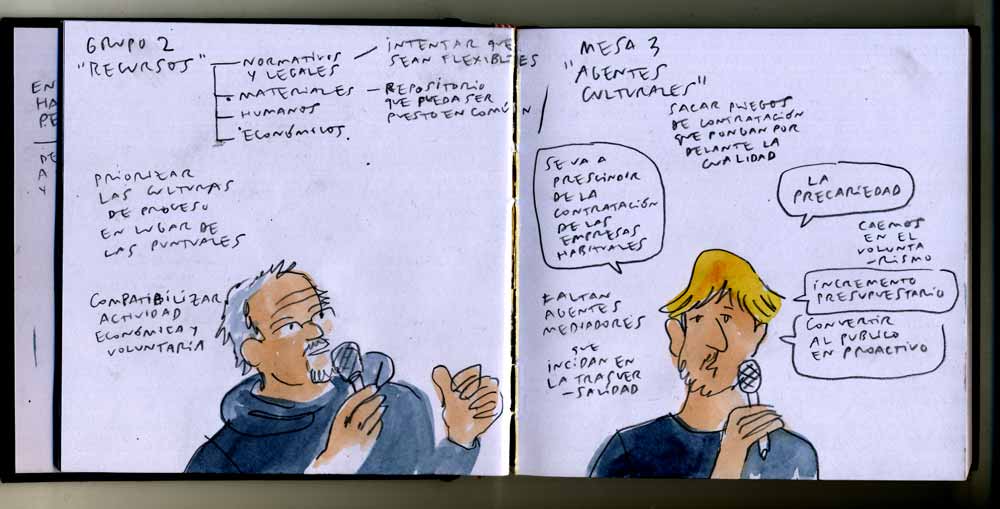 EN
HA
PE
DE
A
Y
GRUPO 2
"RECURSOS"
NORMATIVOS
Y LEGALES
INTENTAR QUE
SEAN FLEXIBLES
MATERIALES
REPOSITORIO
QUE PUEDA SER
PUESTO EN COMÚN
HUMANOS
ECONÓMICOS.
PRIORIZAR
LAS CULTURAS
DE PROCESO
EN LUGAR DE
LAS PUNTUALES
COMPATIBILIZAR
ACTIVIDAD
ECONÓMICA Y
VOLUNTARIA
MESA 3
"AGENTES
CULTURALES"
SACAR PLIEGOS
DE CONTRATACIÓN
QUE PONGAN POR
DELANTE LA
CUALIDAD
SE VA A
PRESCINDIR
DE LA
CONTRATACIÓN
DE LAS
EMPRESAS
HABITUALES
LA
PRECARIEDAD
CAEMOS
EN EL
VOLUNTA
-RISMO
INCREMENTO
PRESUPUESTARIO
CONVERTIR
AL PUBLICO
EN PROACTIVO
FALTAN
AGENTES
MEDIADORES
QUE
INCIDAN EN
LA TRASVER
-SALIDAD